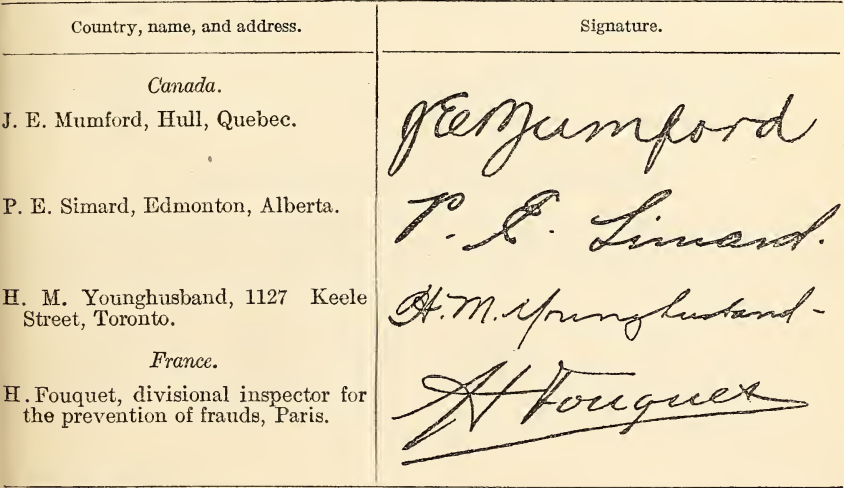 Country, name, and address.
Signature.
Canada.
J. E. Mumford, Hull, Quebec.
J E Mumford
P. E. Simard, Edmonton, Alberta.
P. E. Simard.
H. M. Younghusband, 1127 Keele
Street, Toronto.
H. M. Younghusband-
France.
H. Fouquet, divisional inspector for
the prevention of frauds, Paris.
H Fouquet